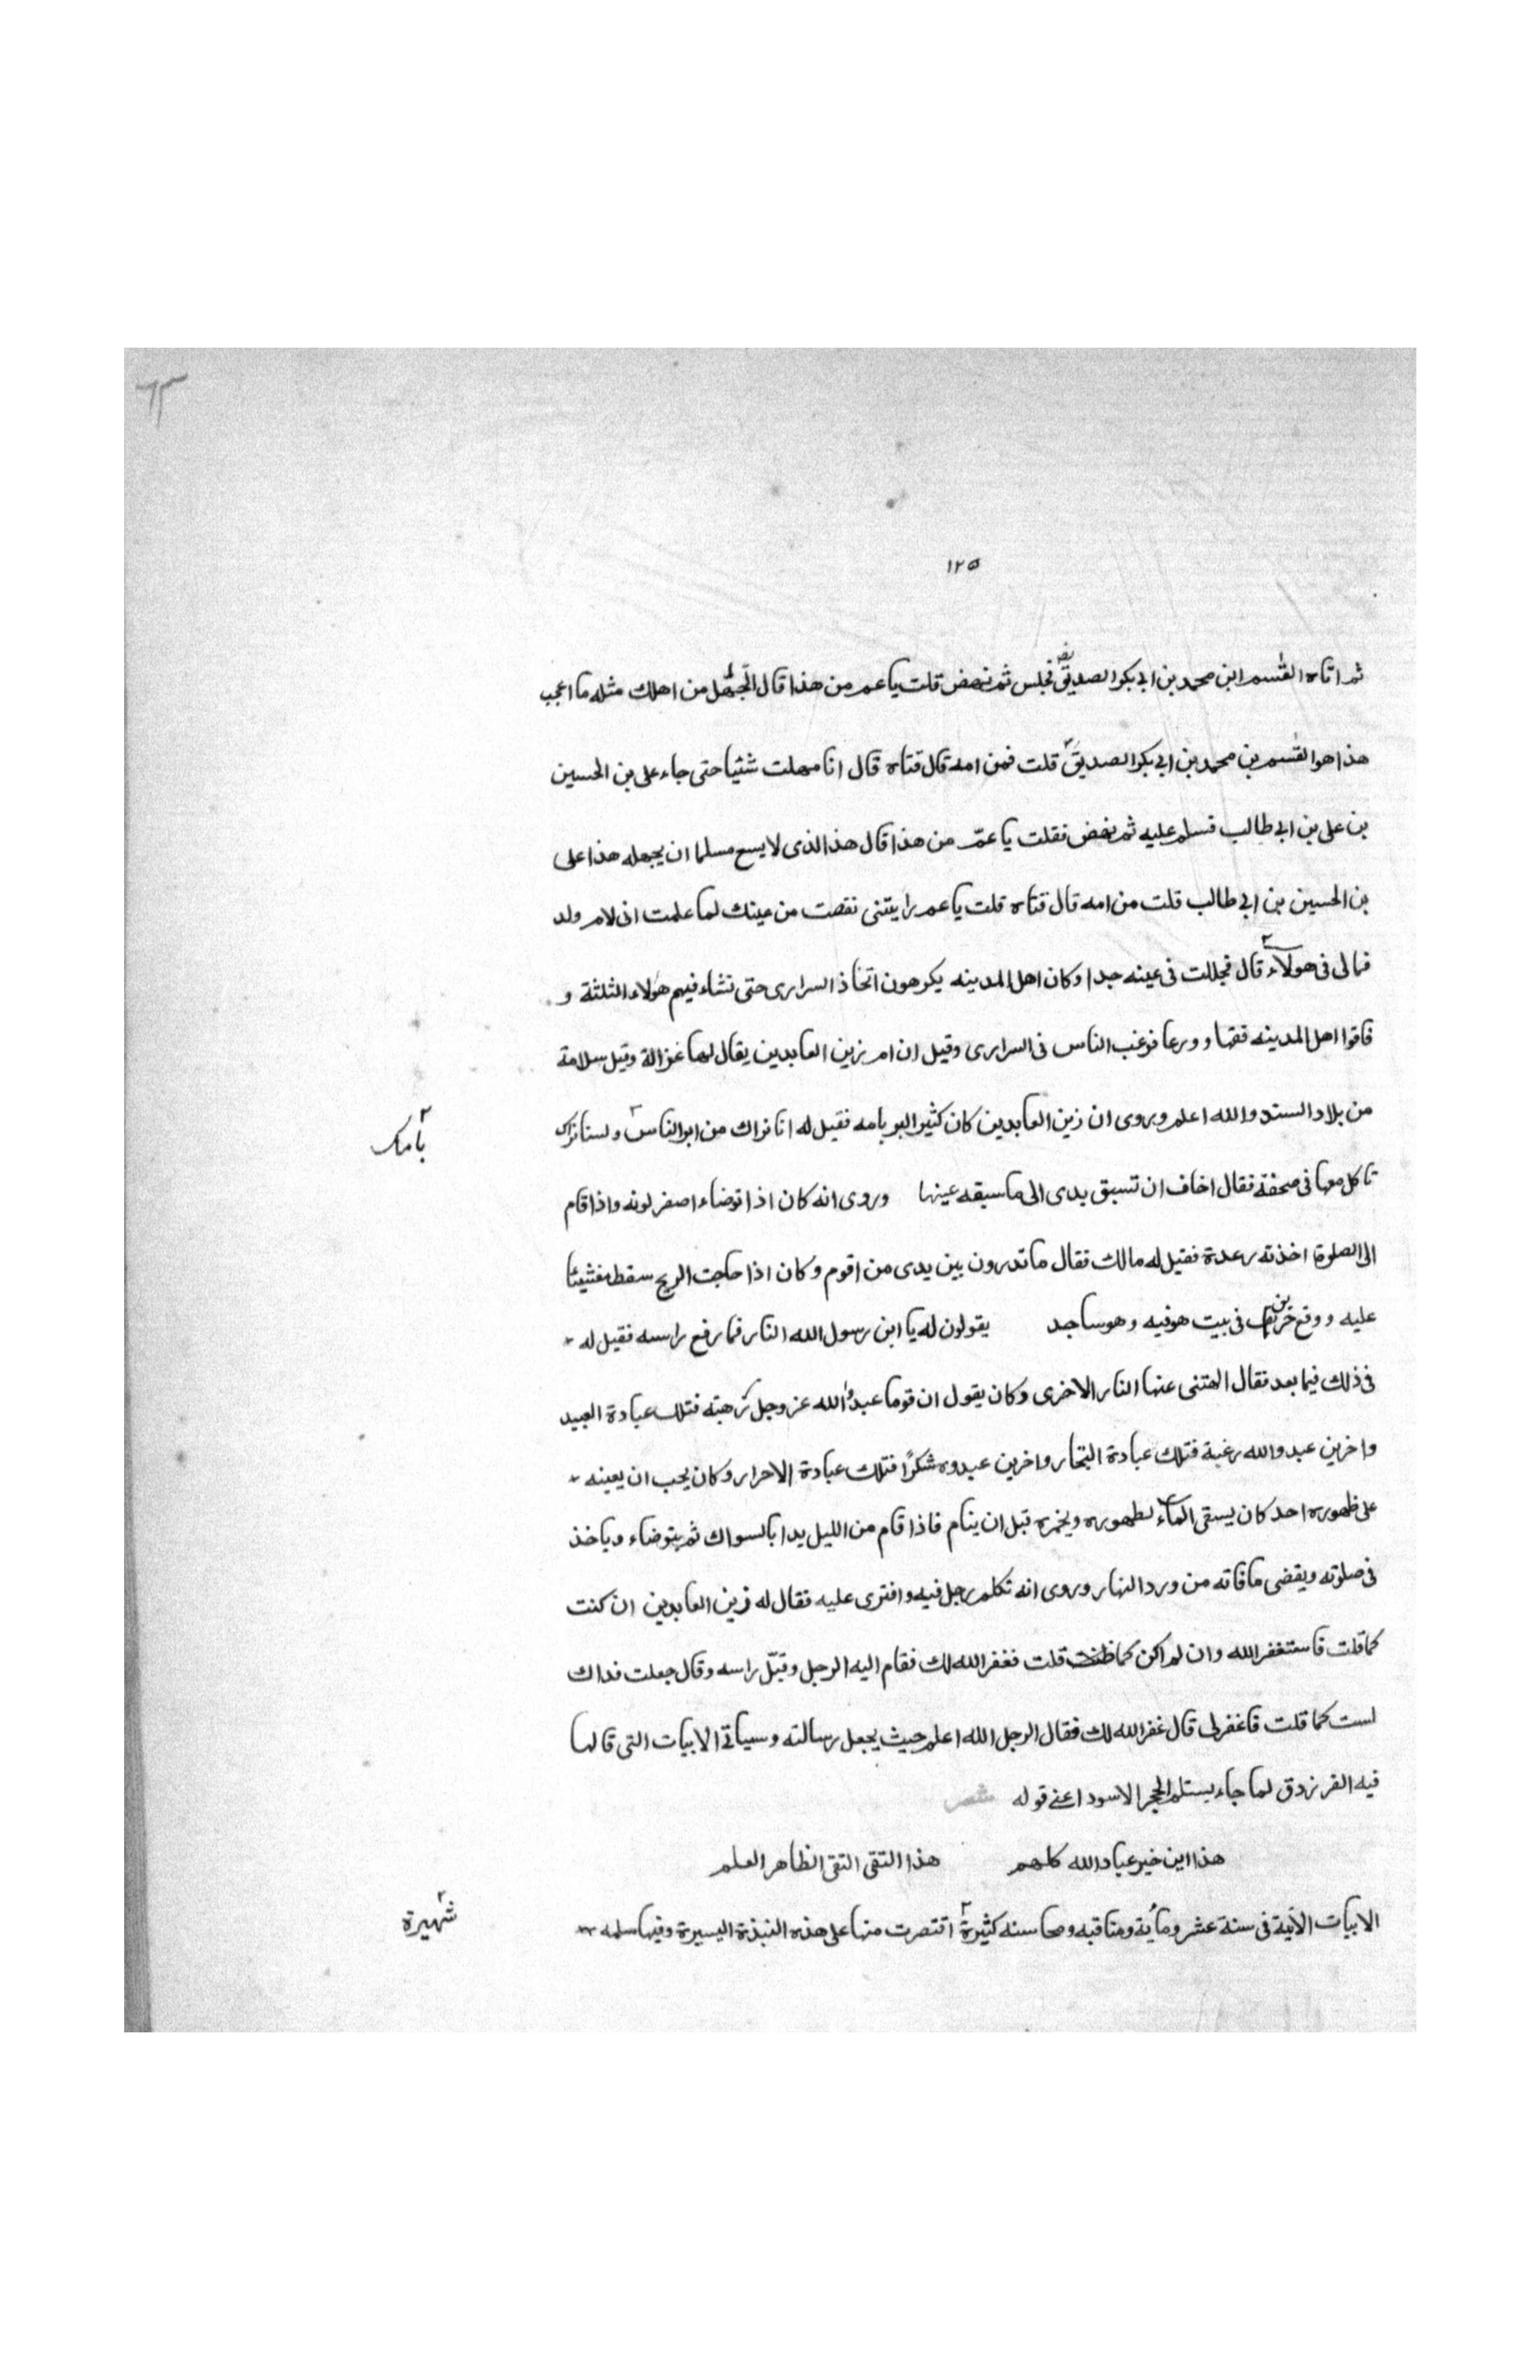 ٦٣
١٢٥
ثم اتاه القٰسم ابن محمد بن ابي بكر الصديقؓ فجلس ثم نهض قلت يا عم من هذا قال اتجهل من اهلك مثله ما اعجب
هذا هو القٰسم بن محمد بن ابي بكر الصديق قلت فمن امه قال فتاه قال انا مهلت شئيا حتى جاء على بن الحسين
بن على بن ابي طالب فسلم عليه ثم نهض فقلت يا عمّ من هذا قال هذا الذى لا يسع مسلما ان يجهله هذا على
بن الحسين بن ابي طالب قلت من امه قال فتاه قلت يا عم رايتنى نقصت من عينك لما علمت انى لام ولد
فمالى فى هولآء قال فجللت فى عينه جدا وكان اهل المدينه يكرهون اتخاذ السرارى حتى نشاء فيهم هؤلاء الثلثة و
فاقوا اهل المدينه فقها و ورعا فرغب الناس فى السرارى وقيل ان ام زين العابدين يقال لها غزالة وقيل سلامة
من بلاد السند والله اعلم ويروى ان زين العابدين كان كثير البر بامه فقيل له انا نراك من ابر الناس ولسنا نراك
بامك
تاكل معها فى صحفة فقال اخاف ان تسبق يدى الى ما سبقه عينها وروى انه كان اذا توضاء اصفر لونه واذا قام
الى الصلوة اخذته رعدة فقيل له مالك فقال ما تدرون بين يدى من اقوم وكان اذا هاجت الريح سقط مغشيئا
عليه ووقع حريق فى بيت هو فيه وهو ساجد يقولون له يا ابن رسول الله النار فما رفع راسه فقيل له
فى ذلك فيما بعد فقال الهتنى عنها النار الاخرى وكان يقول ان قوما عبدوا الله عز وجل رهبته فتلك عبادة العبيد
واخرين عبدو الله رغبة فتلك عبادة التجار واخرين عبدوه شكرًا فتلك عبادة الاحرار وكان يحب ان يعينه
على ظهوره احد كان يسقى الماء لطهوره ويخمره قبل ان ينام فاذا قام من الليل بدا بالسواك ثم يتوضاء وياخذ
فى صلوته ويقضى ما فاته من ورد النهار وروى انه تكلم رجل فيه وافترى عليه فقال له زين العابدين ان كنت
كما قلت فاستغفر الله وان لم اكن كما قلت فغفر الله لك فقام اليه الرجل وقبّل راسه وقال جعلت فداك
لست كما قلت فاغفر لى قال غفر الله لك فقال الرجل الله اعلم حيث يجعل رسالته وسياتى الابيات التى قالها
فيه الفرزدق لما جاء يستلم الحجر الاسود اعنى قوله شعر
هذا ابن خير عباد الله كلهم هذا التقى النقى الطاهر العلم
الابيات الآتية فى سنة عشر ومأية ومناقبه ومحاسنه كثيرة اقتصرت منها على هذه النبذة اليسيرة وفيها سلمه
شهيرة